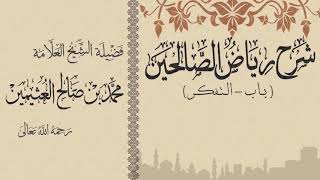 شرح رياض الصالحين
(باب - التفكر)
فضيلة الشيخ العلامة
محمد بن صالح العثيمين
رحمه الله تعالى